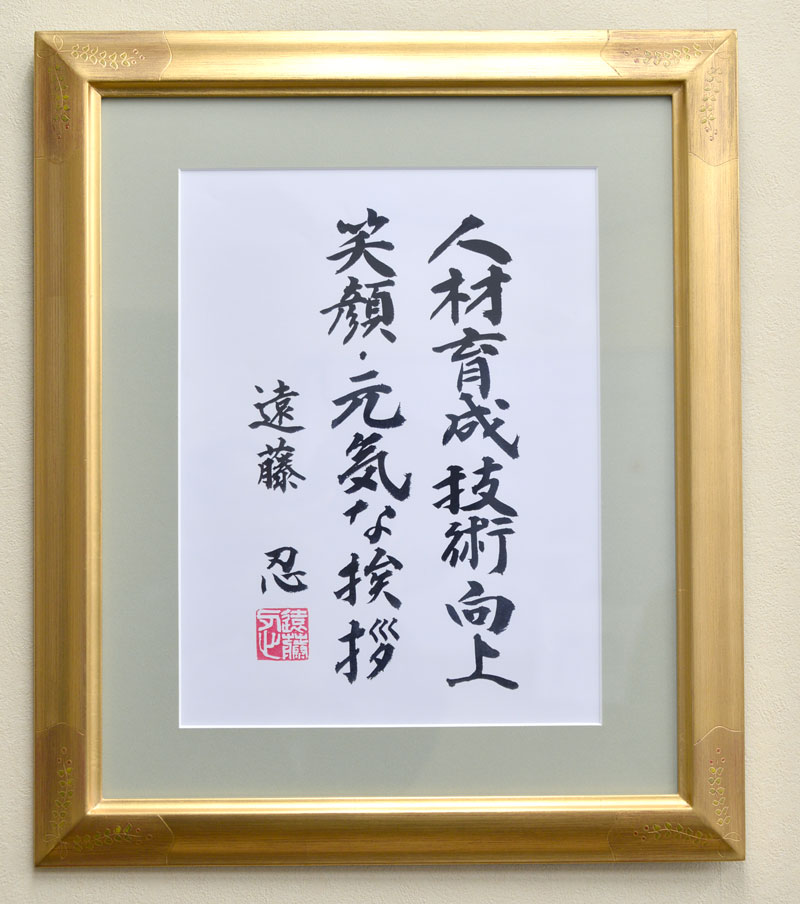 人材育成技術向上
笑顔・元気な挨拶
遠藤 忍
遠藤忍